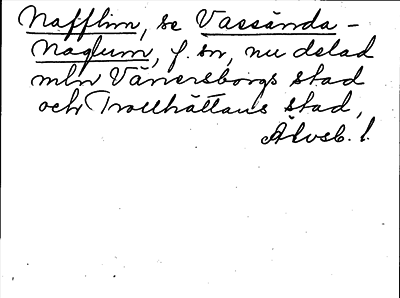 Nafflum, se Vassända-
Naglum, f. sn, nu delad
mln Vänersborgs stad
och Trollhättans stad,
Älvsb. l.